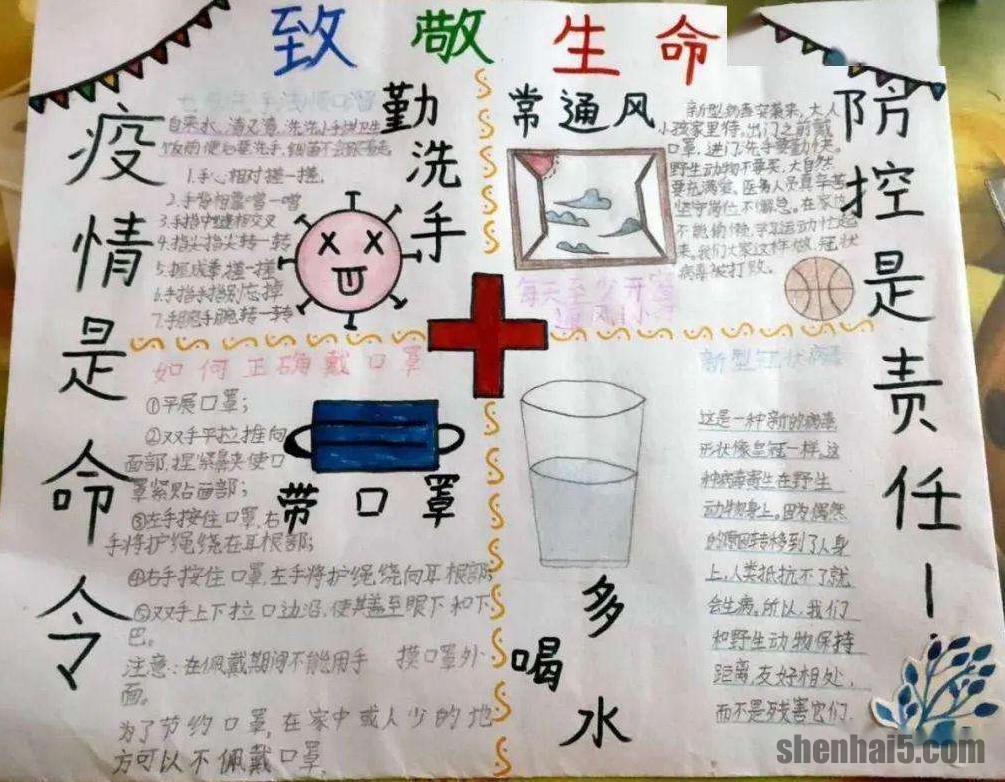 致敬生命
疫情是命令
防控是责任！
勤洗手
自来水,清又清,洗洗小手讲卫生
饭前便后要洗手,细菌不会跟着走
1.手心相对搓一搓,
2.手背相靠
3.手指中缝相交叉
4.指尖指尖转一转
5.握成拳搓一搓
6.手指手指别忘掉
7.手腕手腕转一转
常通风
新型病毒突袭来,大人
小孩家里待,出门之前戴
口罩,进门洗手要勤快。
野生动物不要买,大自然
要充满爱,医务人员真辛苦
坚守岗位不懈怠。在家
不能偷懒,学习运动忙起
来,我们大家这样做,冠状
病毒被打败。
每天至少开窗
通风
如何正确戴口罩
①平展口罩；
②双手平拉推向
面部,捏紧鼻夹使口
罩紧贴面部；
③左手按住口罩,右
手将护绳绕在耳根部；
④右手按住口罩左手将护绳绕向耳根部
⑤双手上下拉口边沿,使其盖至眼下和下
巴。
注意:在佩戴期间不能用手 摸口罩外
面。
为了节约口罩,在家中或人少的地
方可以不佩戴口罩.
带口罩
多喝水
新型冠状病毒
这是一种新的病毒
形状像皇冠一样,这
种病毒寄生在野生
动物身上。因为偶然
的原因转移到了人身
上,人类抵抗不了就
会生病。所以,我们
和野生动物保持
距离,友好相处,
而不是残害它们.
shenhai5.com